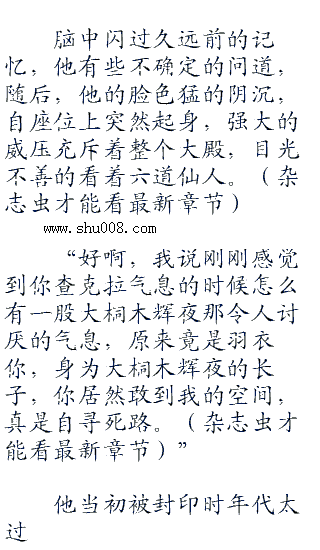 脑中闪过久远前的记
忆，他有些不确定的问道，
随后，他的脸色猛的阴沉，
自座位上突然起身，强大的
威压充斥着整个大殿，目光
不善的看着六道仙人。（杂
志虫才能看最新章节）
www.shu008.com
“好啊，我说刚刚感觉
到你查克拉气息的时候怎么
有一股大桐木辉夜那令人讨
厌的气息，原来竟是羽衣
你，身为大桐木辉夜的长
子，你居然敢到我的空间，
真是自寻死路。（杂志虫才
能看最新章节）”
他当初被封印时年代太
过